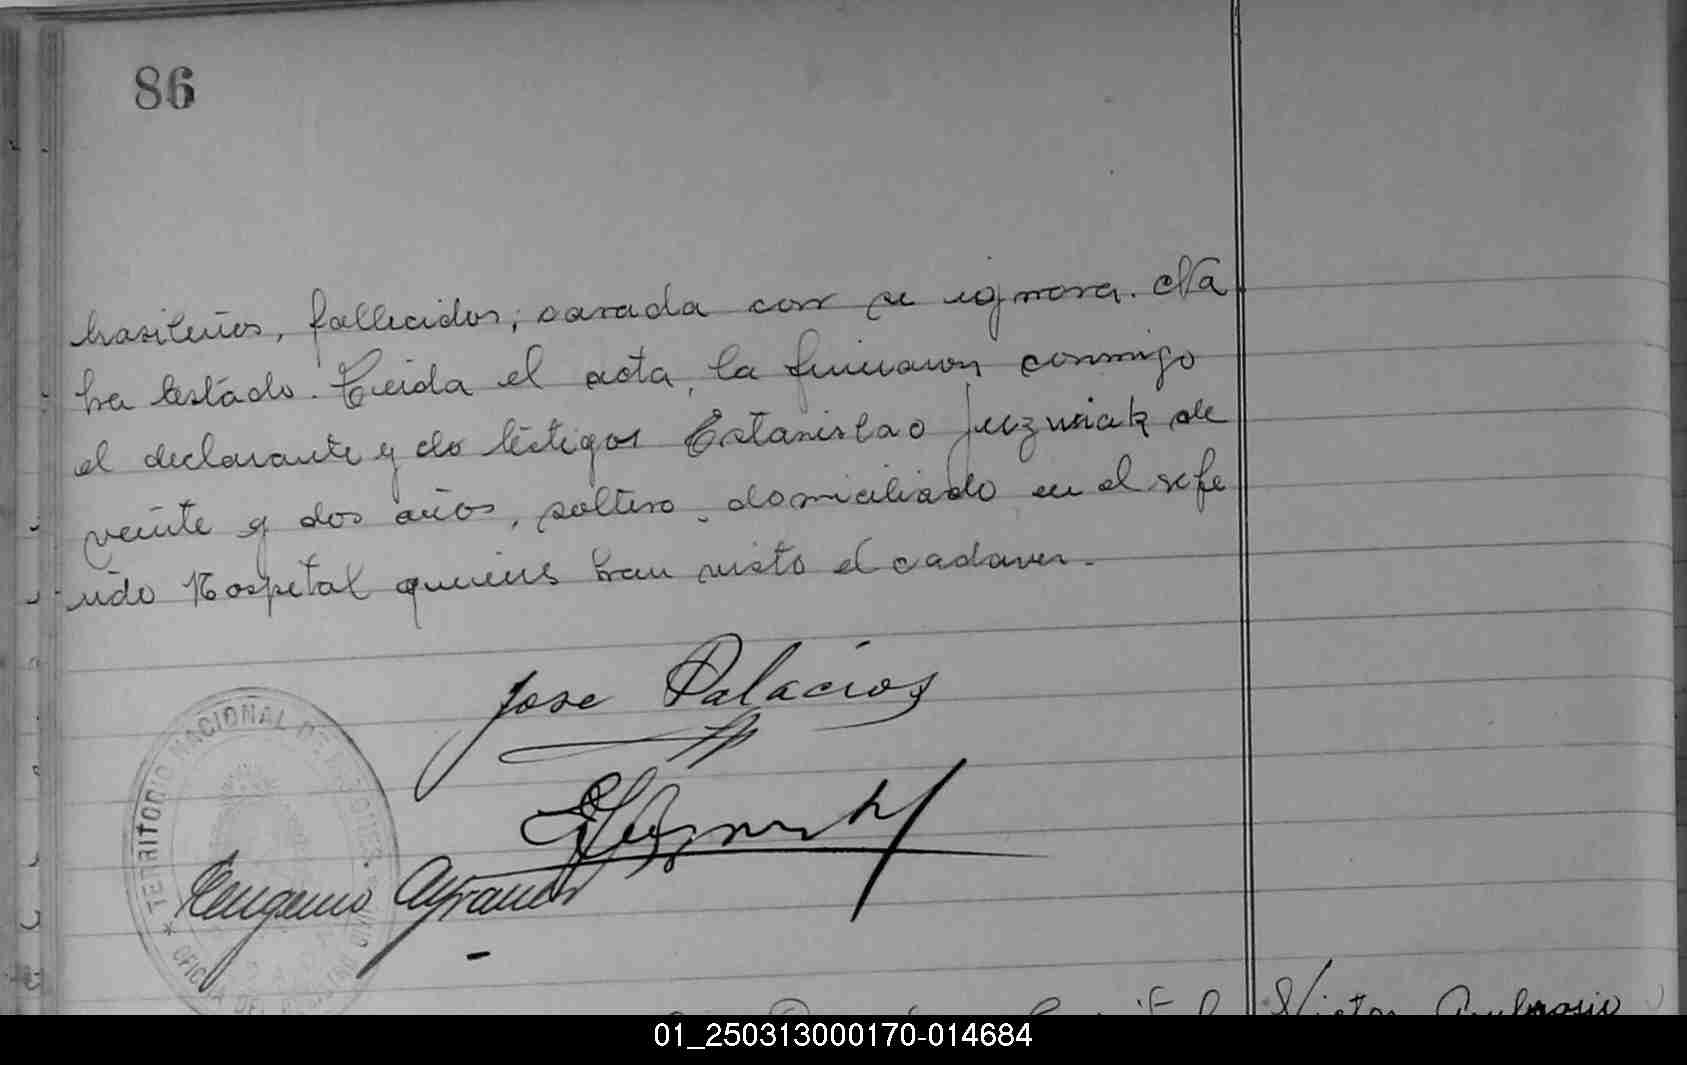 86
brasileños, fallecidos, casada con se ignora. No
ha testado. Leida el acta, la firmaron conmigo
el declarante y do testigos Estanislao Juzwiak de
veinte y dos años, soltero, domiciliado en el refe
rido Hospital quienes han visto el cadaver.
Jose Palacios
Eugenio
* TERRITORIO NACIONAL DE MISIONES *
OFICINA DEL REGISTRO CIVIL
Victor Ambrosio
01_250313000170-014684